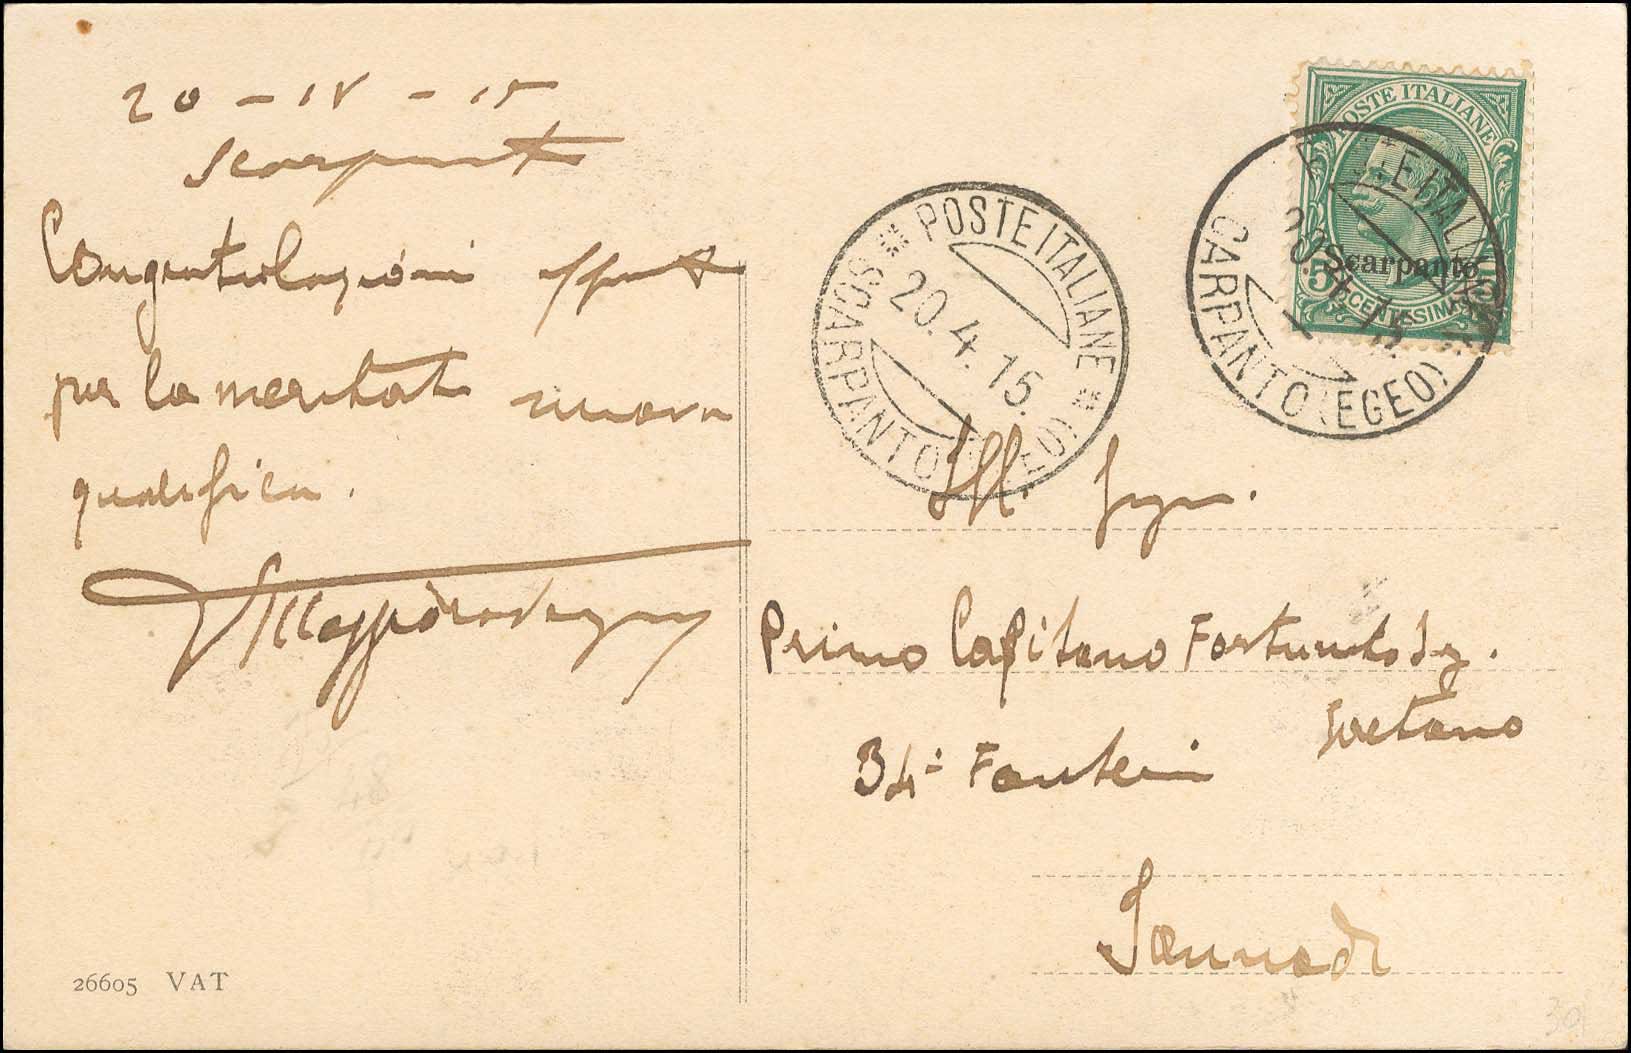 20 - IV - 15
Scarpanto
Congratulazioni
per la meritata nuova
qualifica.
26605 VAT
POSTE ITALIANE
Scarpanto
5 CENTESIMI 5
POSTE ITALIANE
20.4.15.
SCARPANTO (EGEO)
POSTE ITALIANE
20.4.15.
SCARPANTO (EGEO)
Ill. Sign.
Primo Capitano Fortunato Sg.
Gaetano
34º Fanteria
30